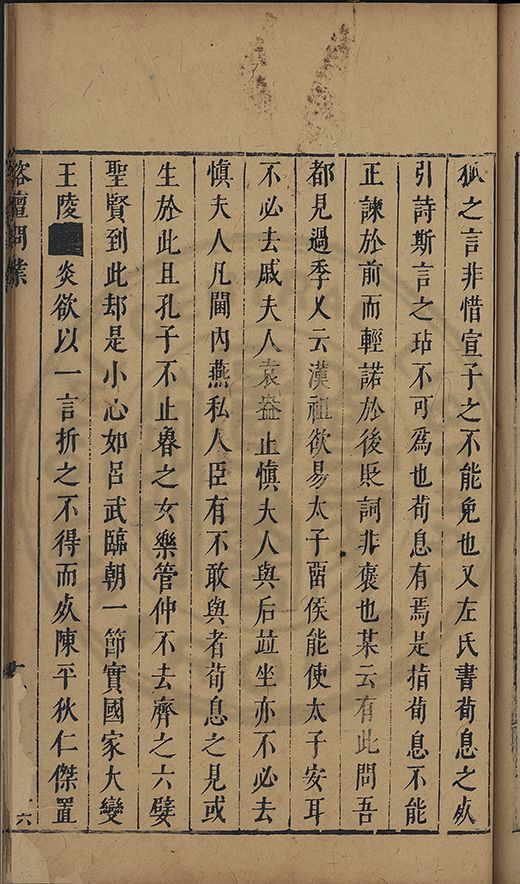 狐之言非惜宣子之不能免也又左氏書荀息之㱙
引詩斯言之玷不可爲也荀息有焉是指荀息不能
正諫於前而輕諾於後貶詞非褒也某云有此問吾
都見過季乂云漢祖欲易太子畱侯能使太子安耳
不必去戚夫人袁盎止愼夫人與后竝坐亦不必去
愼夫人凡閫內燕私人臣有不敢與者荀息之見或
生於此且孔子不止魯之女樂管仲不去齊之六嬖
聖賢到此却是小心如呂武臨朝一節實國家大變
王陵 炎欲以一言折之不得而㱙陳平狄仁傑置
榕壇問業
六